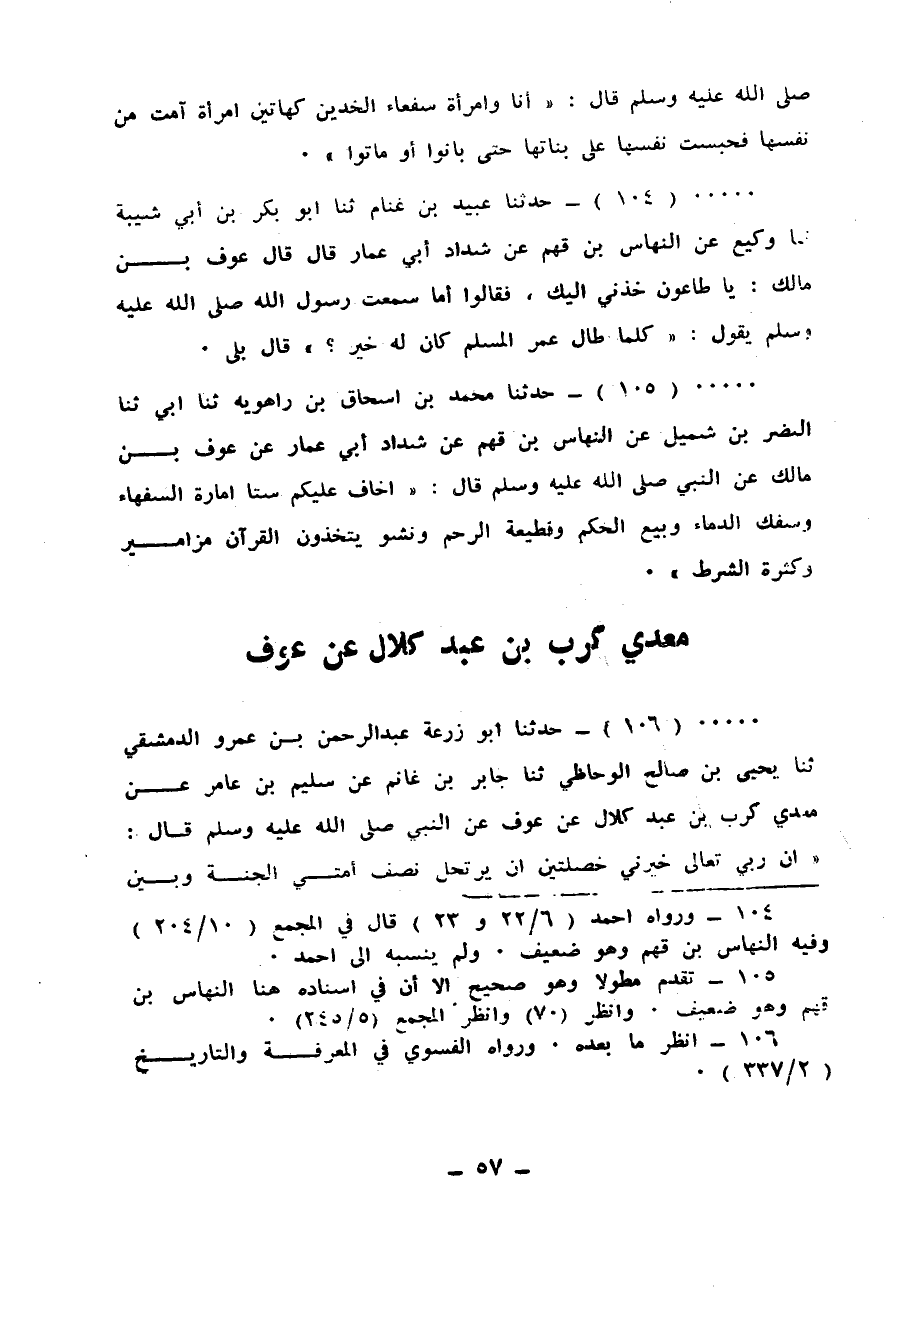 صلى الله عليه وسلم قال : « أنا وامرأة سفعاء الخدين كهاتين امرأة آمت من
نفسها فحبست نفسها على بناتها حتى بانوا أو ماتوا » ٠
٠٠٠٠٠ ( ١٠٤ ) ـ حدثنا عبيد بن غنام ثنا ابو بكر بن أبي شيبة
ثنا وكيع عن النهاس بن قهم عن شداد أبي عمار قال قال عوف بـــــن
مالك : يا طاعون خذني اليك ، فقالوا أما سمعت رسول الله صلى الله عليه
وسلم يقول : « كلما طال عمر المسلم كان له خير ؟ » قال بلى ٠
٠٠٠٠٠ ( ١٠٥ ) ـ حدثنا محمد بن اسحاق بن راهويه ثنا ابي ثنا
النضر بن شميل عن النهاس بن قهم عن شداد أبي عمار عن عوف بـــــن
مالك عن النبي صلى الله عليه وسلم قال : « اخاف عليكم ستا امارة السفهاء
وسفك الدماء وبيع الحكم وقطيعة الرحم ونشو يتخذون القرآن مزامـــــير
وكثرة الشرط » ٠
معدي كرب بن عبد كلال عن عوف
٠٠٠٠٠ ( ١٠٦ ) ـ حدثنا ابو زرعة عبدالرحمن بـن عمرو الدمشقي
ثنا يحيى بن صالح الوحاظي ثنا جابر بن غانم عن سليم بن عامر عـــــن
معدي كرب بن عبد كلال عن عوف عن النبي صلى الله عليه وسلم قـال :
« ان ربي تعالى خيرني خصلتين ان يرتحل نصف أمتـــي الجنـــة وبـــين
١٠٤ ـ ورواه احمد ( ٢٢/٦ و ٢٣ ) قال في المجمع ( ٢٠٤/١٠ )
وفيه النهاس بن قهم وهو ضعيف ٠ ولم ينسبه الى احمد ٠
١٠٥ ـ تقدم مطولا وهو صحيح الا أن في اسناده هنا النهاس بن
قهم وهو ضعيف ٠ وانظر (٧٠) وانظر المجمع (٢٤٥/٥) ٠
١٠٦ ـ انظر ما بعده ٠ ورواه الفسوي في المعرفـــة والتاريـــخ
( ٣٣٧/٢ ) ٠
ـ ٥٧ ـ